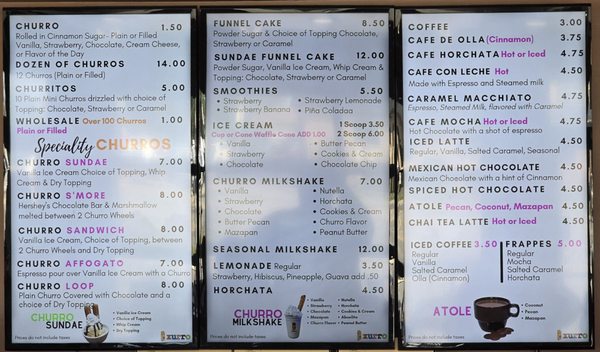 CHURRO 1.50
Rolled in Cinnamon Sugar- Plain or Filled
Vanilla, Strawberry, Chocolate, Cream Cheese,
or Flavor of the Day
DOZEN OF CHURROS 14.00
12 Churros (Plain or Filled)
CHURRITOS 5.00
10 Plain Mini Churros drizzled with choice of
Topping: Chocolate, Strawberry or Caramel
WHOLESALE Over 100 Churros 1.00
Plain or Filled
Speciality CHURROS
CHURRO SUNDAE 7.00
Vanilla Ice Cream Choice of Topping, Whip
Cream & Dry Topping
CHURRO S'MORE 8.00
Hershey's Chocolate Bar & Marshmallow
melted between 2 Churro Wheels
CHURRO SANDWICH 8.00
Vanilla Ice Cream, Choice of Topping, between
2 Churro Wheels and Dry Topping
CHURRO AFFOGATO 7.00
Espresso pour over Vanilla Ice Cream with a Churro
CHURRO LOOP 8.00
Plain Churro Covered with Chocolate and a
choice of Dry Topping
CHURRO
SUNDAE
• Vanilla Ice Cream
• Choice of Topping
• Whip Cream
• Dry Topping
Prices do not include taxes
xurro
FUNNEL CAKE 8.50
Powder Sugar & Choice of Topping Chocolate,
Strawberry or Caramel
SUNDAE FUNNEL CAKE 12.00
Powder Sugar, Vanilla Ice Cream, Whip Cream &
Topping: Chocolate, Strawberry or Caramel
SMOOTHIES 5.50
• Strawberry • Strawberry Lemonade
• Strawberry Banana • Piña Coladaa
ICE CREAM 1 Scoop 3.50
Cup or Cone Waffle Cone ADD 1.00 2 Scoop 6.00
• Vanilla • Butter Pecan
• Strawberry • Cookies & Cream
• Chocolate • Chocolate Chip
CHURRO MILKSHAKE 7.00
• Vanilla • Nutella
• Strawberry • Horchata
• Chocolate • Cookies & Cream
• Butter Pecan • Churro Flavor
• Mazapan • Peanut Butter
SEASONAL MILKSHAKE 12.00
LEMONADE Regular 3.50
Strawberry, Hibiscus, Pineapple, Guava add .50
HORCHATA 4.50
CHURRO
MILKSHAKE
• Vanilla • Nutella
• Strawberry • Horchata
• Chocolate • Cookies & Cream
• Mazapan
• Churro Flavor • Peanut Butter
Prices do not include taxes
xurro
COFFEE 3.00
CAFE DE OLLA (Cinnamon) 3.75
CAFE HORCHATA Hot or Iced 4.75
CAFE CON LECHE Hot 4.50
Made with Espresso and Steamed milk
CARAMEL MACCHIATO 4.75
Espresso, Steamed Milk, flavored with Caramel
CAFE MOCHA Hot or Iced 4.75
Hot Chocolate with a shot of espresso
ICED LATTE 4.50
Regular, Vanilla, Salted Caramel, Seasonal
MEXICAN HOT CHOCOLATE 4.50
Mexican Chocolate with a hint of Cinnamon
SPICED HOT CHOCOLATE 4.50
ATOLE Pecan, Coconut, Mazapan 4.50
CHAI TEA LATTE Hot or Iced 4.50
ICED COFFEE 3.50
Regular
Vanilla
Salted Caramel
Olla (Cinnamon)
FRAPPES 5.00
Regular
Mocha
Salted Caramel
Horchata
ATOLE
• Coconut
• Pecan
• Mazapan
Prices do not include taxes
xurro